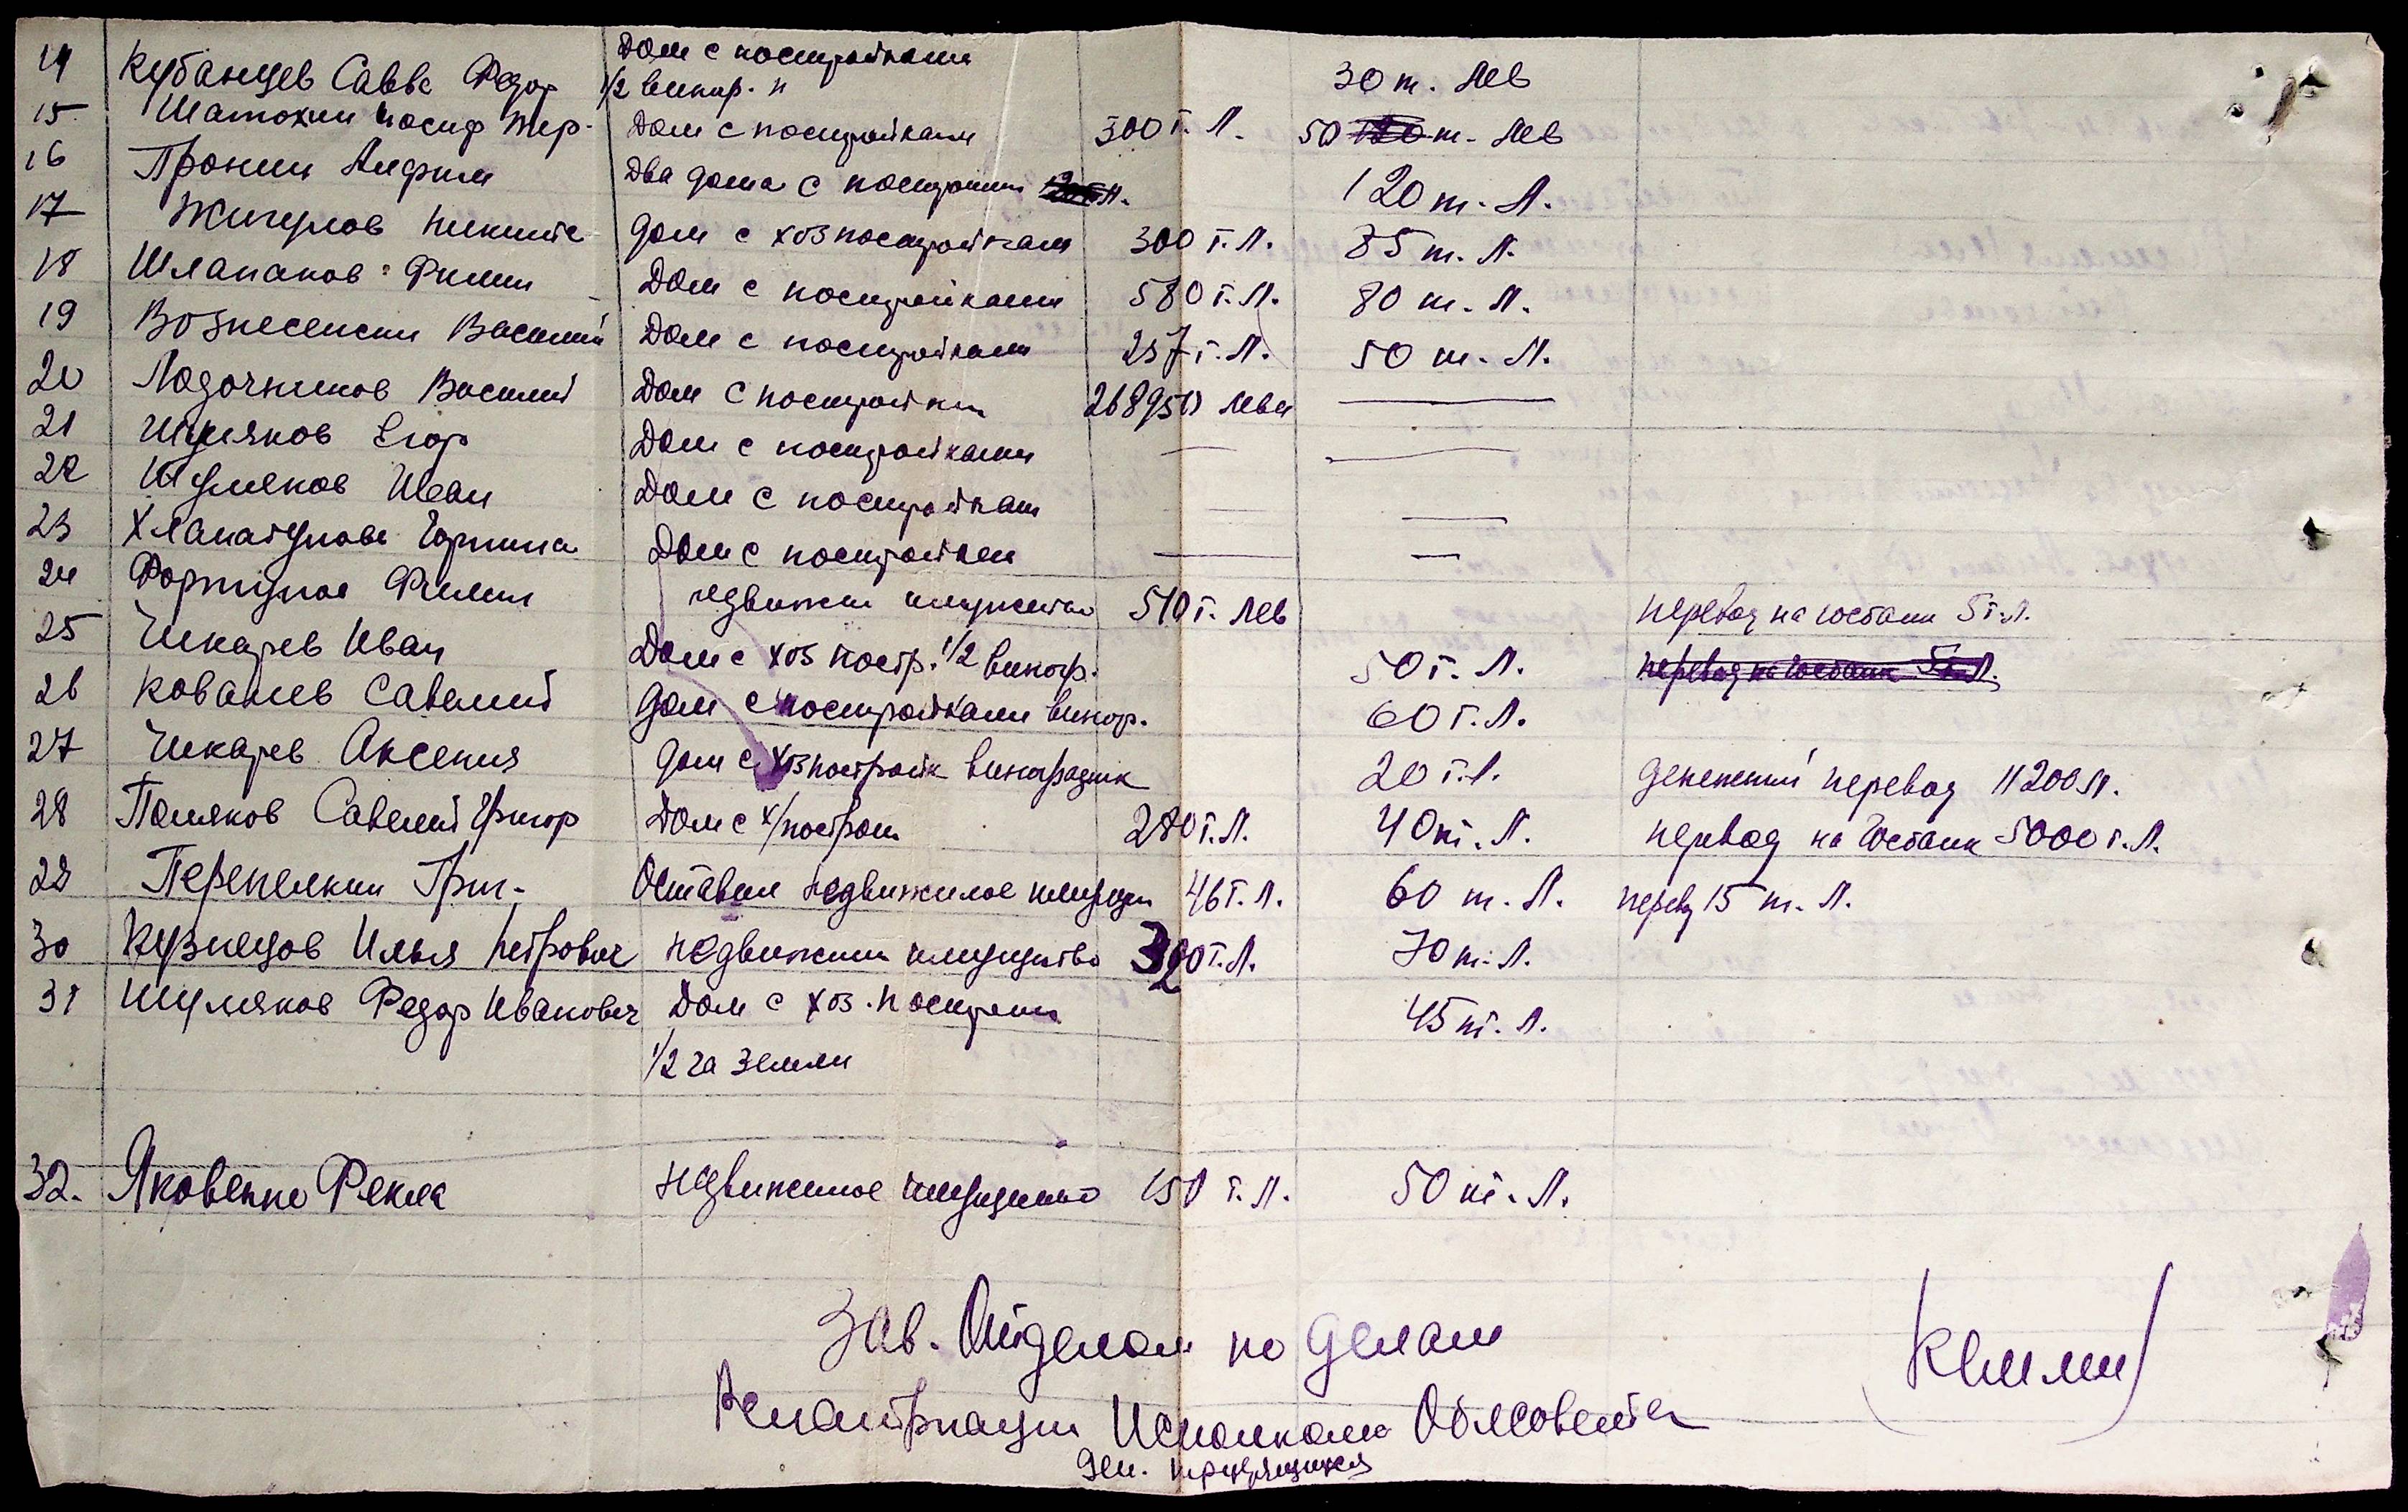 14 Кубанцев Савва Федор Дом с постройками
1/2 виногр. н 30 т. Лев
15. Шатохин Иосиф Тер. Дом с постройками 300 т. Л. 50 120 т. Лев
16 Пронин Анфим Два дома с построики 120 т. Л.
17 Жигулов Никита дом с хозпостройкам 300 т. Л. 85 т. Л.
18 Шлапаков Филип Дом с постройками 580 т. Л. 80 т. Л.
19 Вознесенски Василий Дом с постройками 257 т. Л. 50 т. Л.
20 Лодочников Василий Дом с постройки 268950 Лева —
21 Шуляков Егор Дом с постройками — —
22 Шуляков Иван Дом с постройкам — —
23 Хлапатунова Горпина Дом с постройкам — —
24 Фортунов Филип недвижим имущество 510 т. Лев перевод на госбанк 5 т. Л.
25 Чикарев Иван Дом с хоз постр. 1/2 виногр. 50 т. Л. перевод на госбанк 5 т. Л.
26 Ковалев Савелий дом с постройками виногр. 60 т. Л.
27 Чикарев Аксения дом с хозпостройк виноградник 20 т. Л. денежный перевод 11200 Л.
28 Поляков Савелий Григор Дом с х/построй 280 т. Л. 40 т. Л. перевод на Госбанк 5000 т. Л.
29 Перепелкин Григ. Оставил недвижимое имущ 46 т. Л. 60 т. Л. перев 15 т. Л.
30 Кузнецов Илья Петрович недвижим имущество 320 т. Л. 70 т. Л.
31 Шуляков Федор Иванович Дом с хоз. построй 45 т. Л.
1/2 га земли
32. Яковенко Фекла недвижимое имущество 150 т. Л. 50 т. Л.
Зав. Отделом по делам
Репатриации Исполкома Облсовета
деп. трудящихся